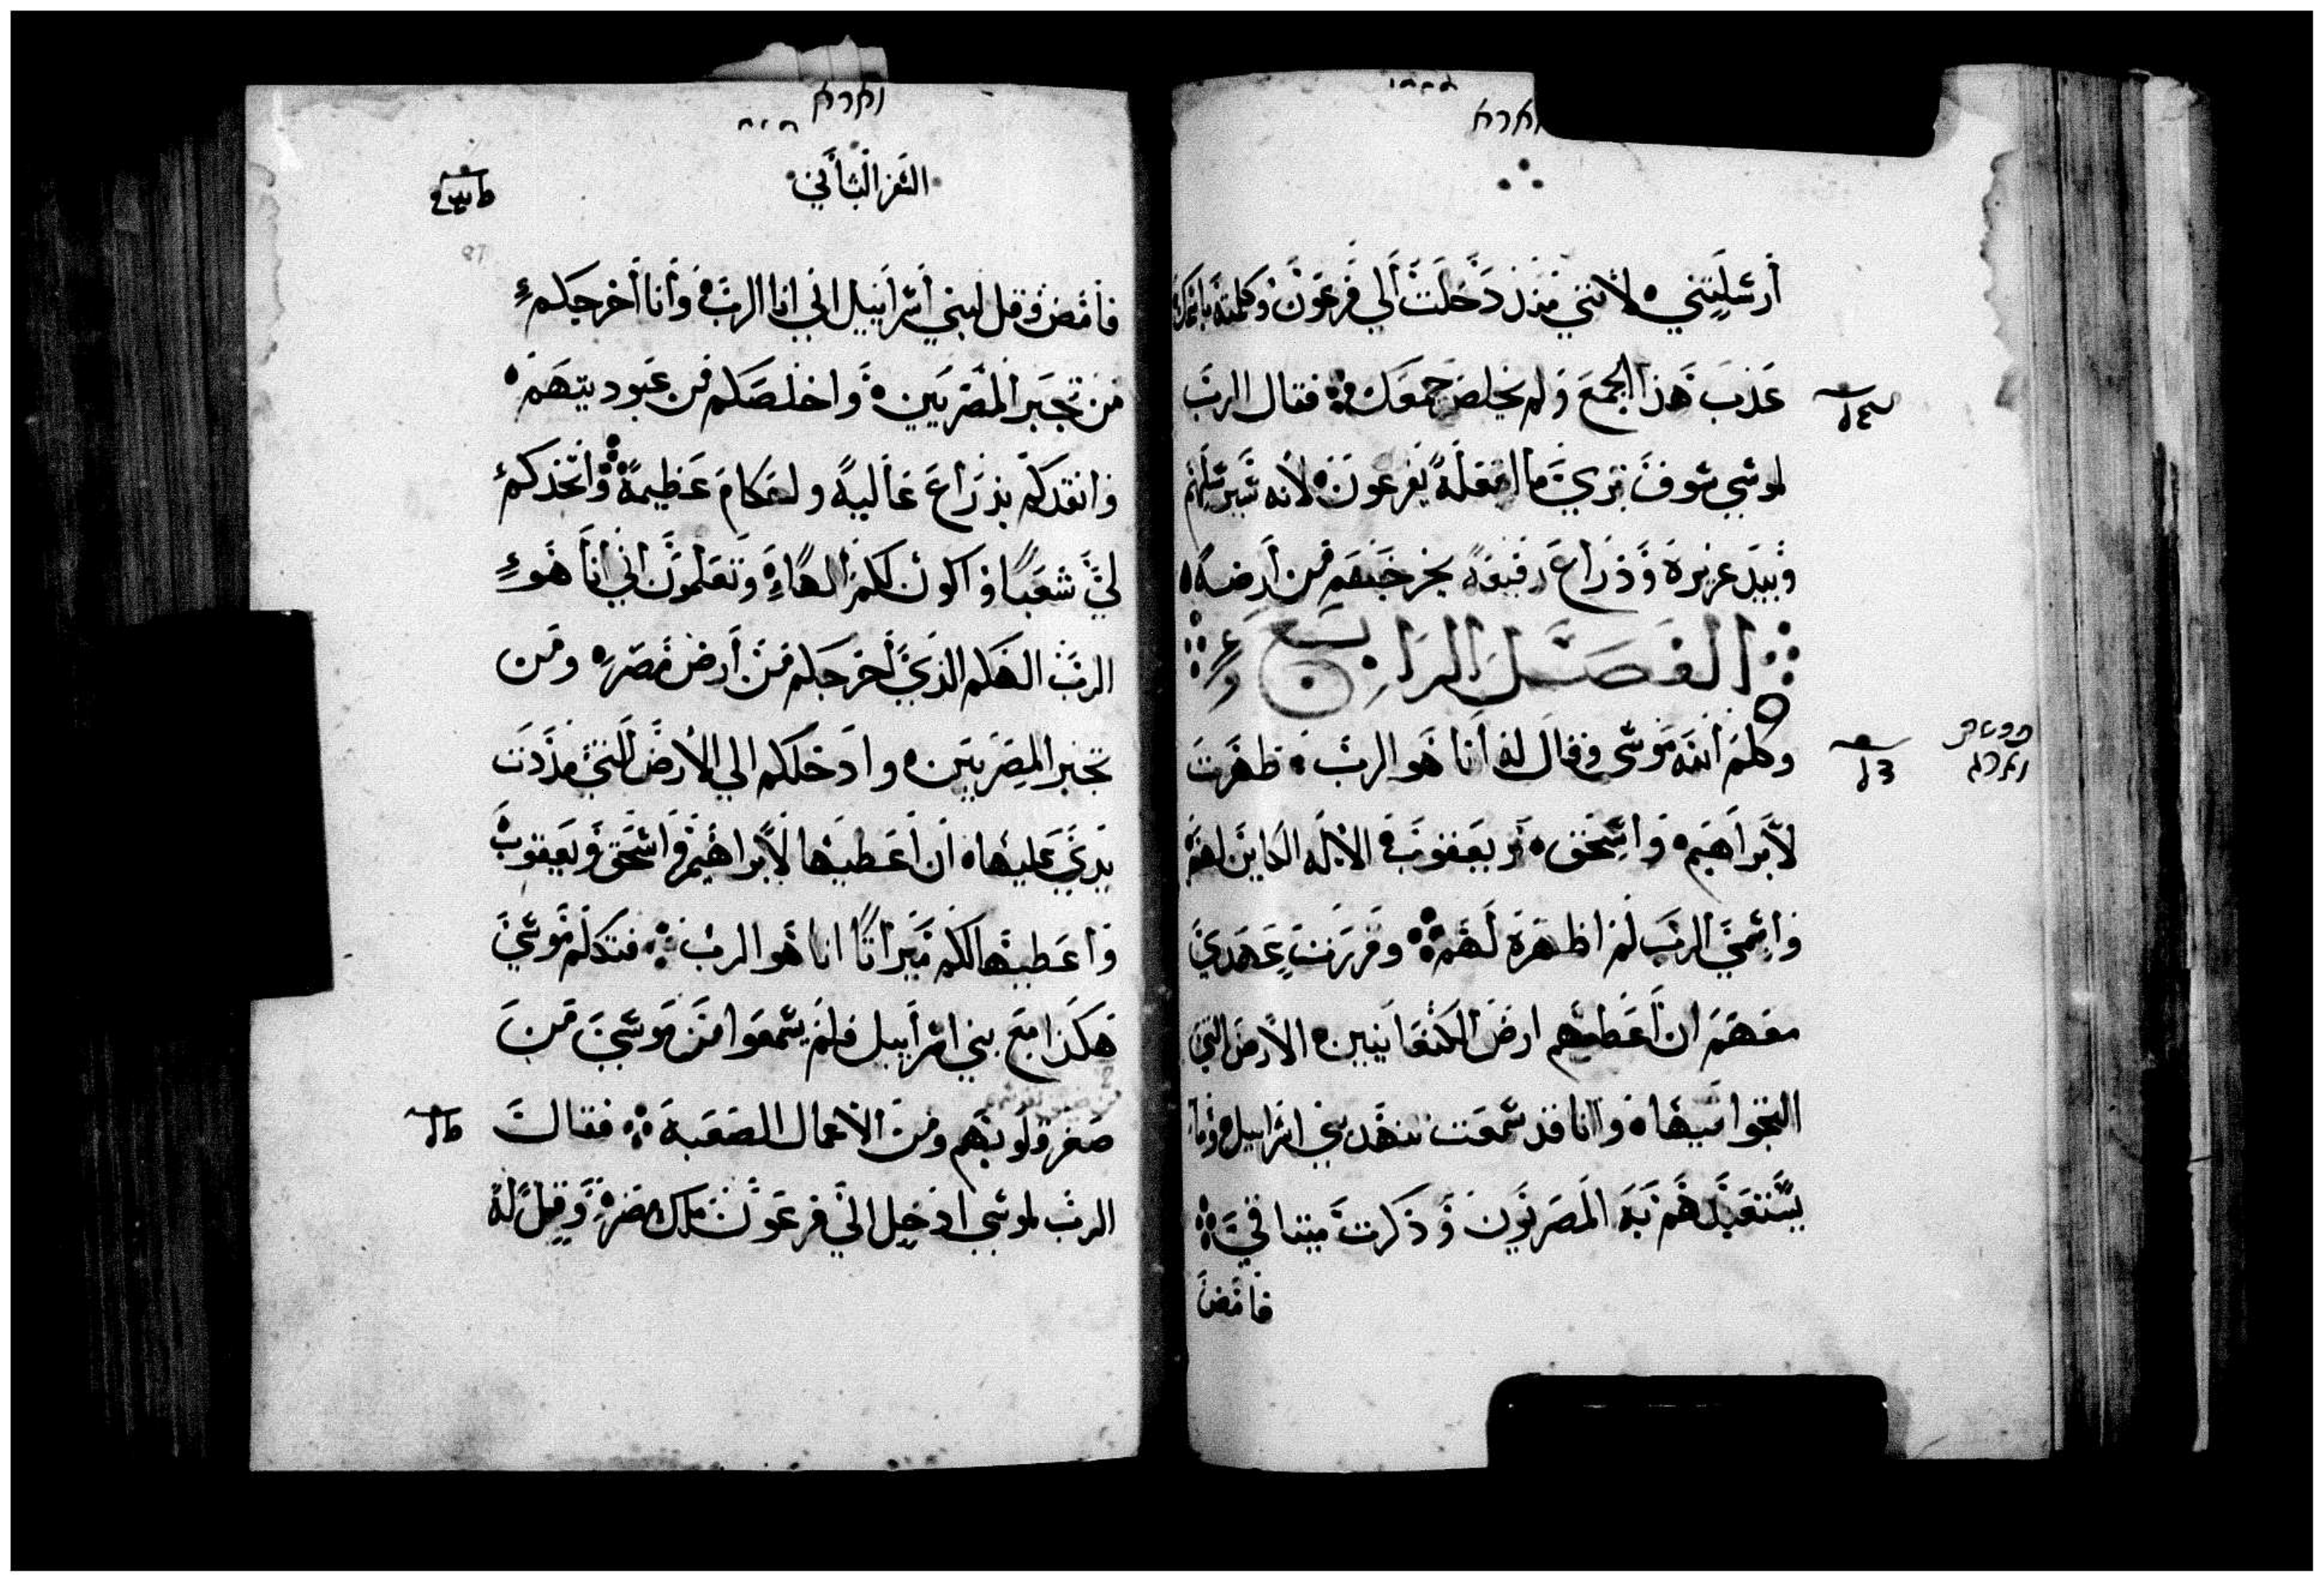 וארא
أرسلتني لأنني منذ دخلت الي فرعون وكلمته باسمك
عذب هذا الجمع ولم يخلص جمعك فقال الرب
لموسي سوف تري ما افعله بفرعون لأنه سيرسلهم
وبيد عزيزة وذراع رفيعة يخرجهم من أرضه
الفصل الرابع
وكلم الله موسى وقال له أنا هو الرب ظهرت
لأبراهيم واسحق ويعقوب الاله الكاين لهم
واسمي الرب لم اظهره لهم وقررت عهدي
معهم ان أعطيهم ارض الكنعانيين الأرض التي
التجوا فيها وانا قد سمعت تنهد بني اسراييل وما
يستعبدهم به المصريون وذكرت ميثاقي
فامض
וארא
السفر الثاني
فأمض وقل لبني أسراييل اني انا الرب وأنا أخرجكم
من تجبر المصريين واخلصكم من عبوديتهم
وانقدكم بذراع عالية وأحكام عظيمة وأتخذكم
لي شعبًا واكون لكم الهًا وتعلمون اني أنا هو
الرب الهكم الذي أخرجكم من أرض مصر ومن
تجبر المصريين وادخلكم الي الأرض التي مددت
يدي عليها ان أعطيها لأبراهيم واسحق ويعقوب
وأعطيها لكم ميراثًا انا هو الرب فتكلم موسي
هكذا مع بني اسراييل فلم يسمعوا من موسي من
صغر قلوبهم ومن الأعمال الصعبة فقال
الرب لموسي ادخل الي فرعون ملك مصر وقل له